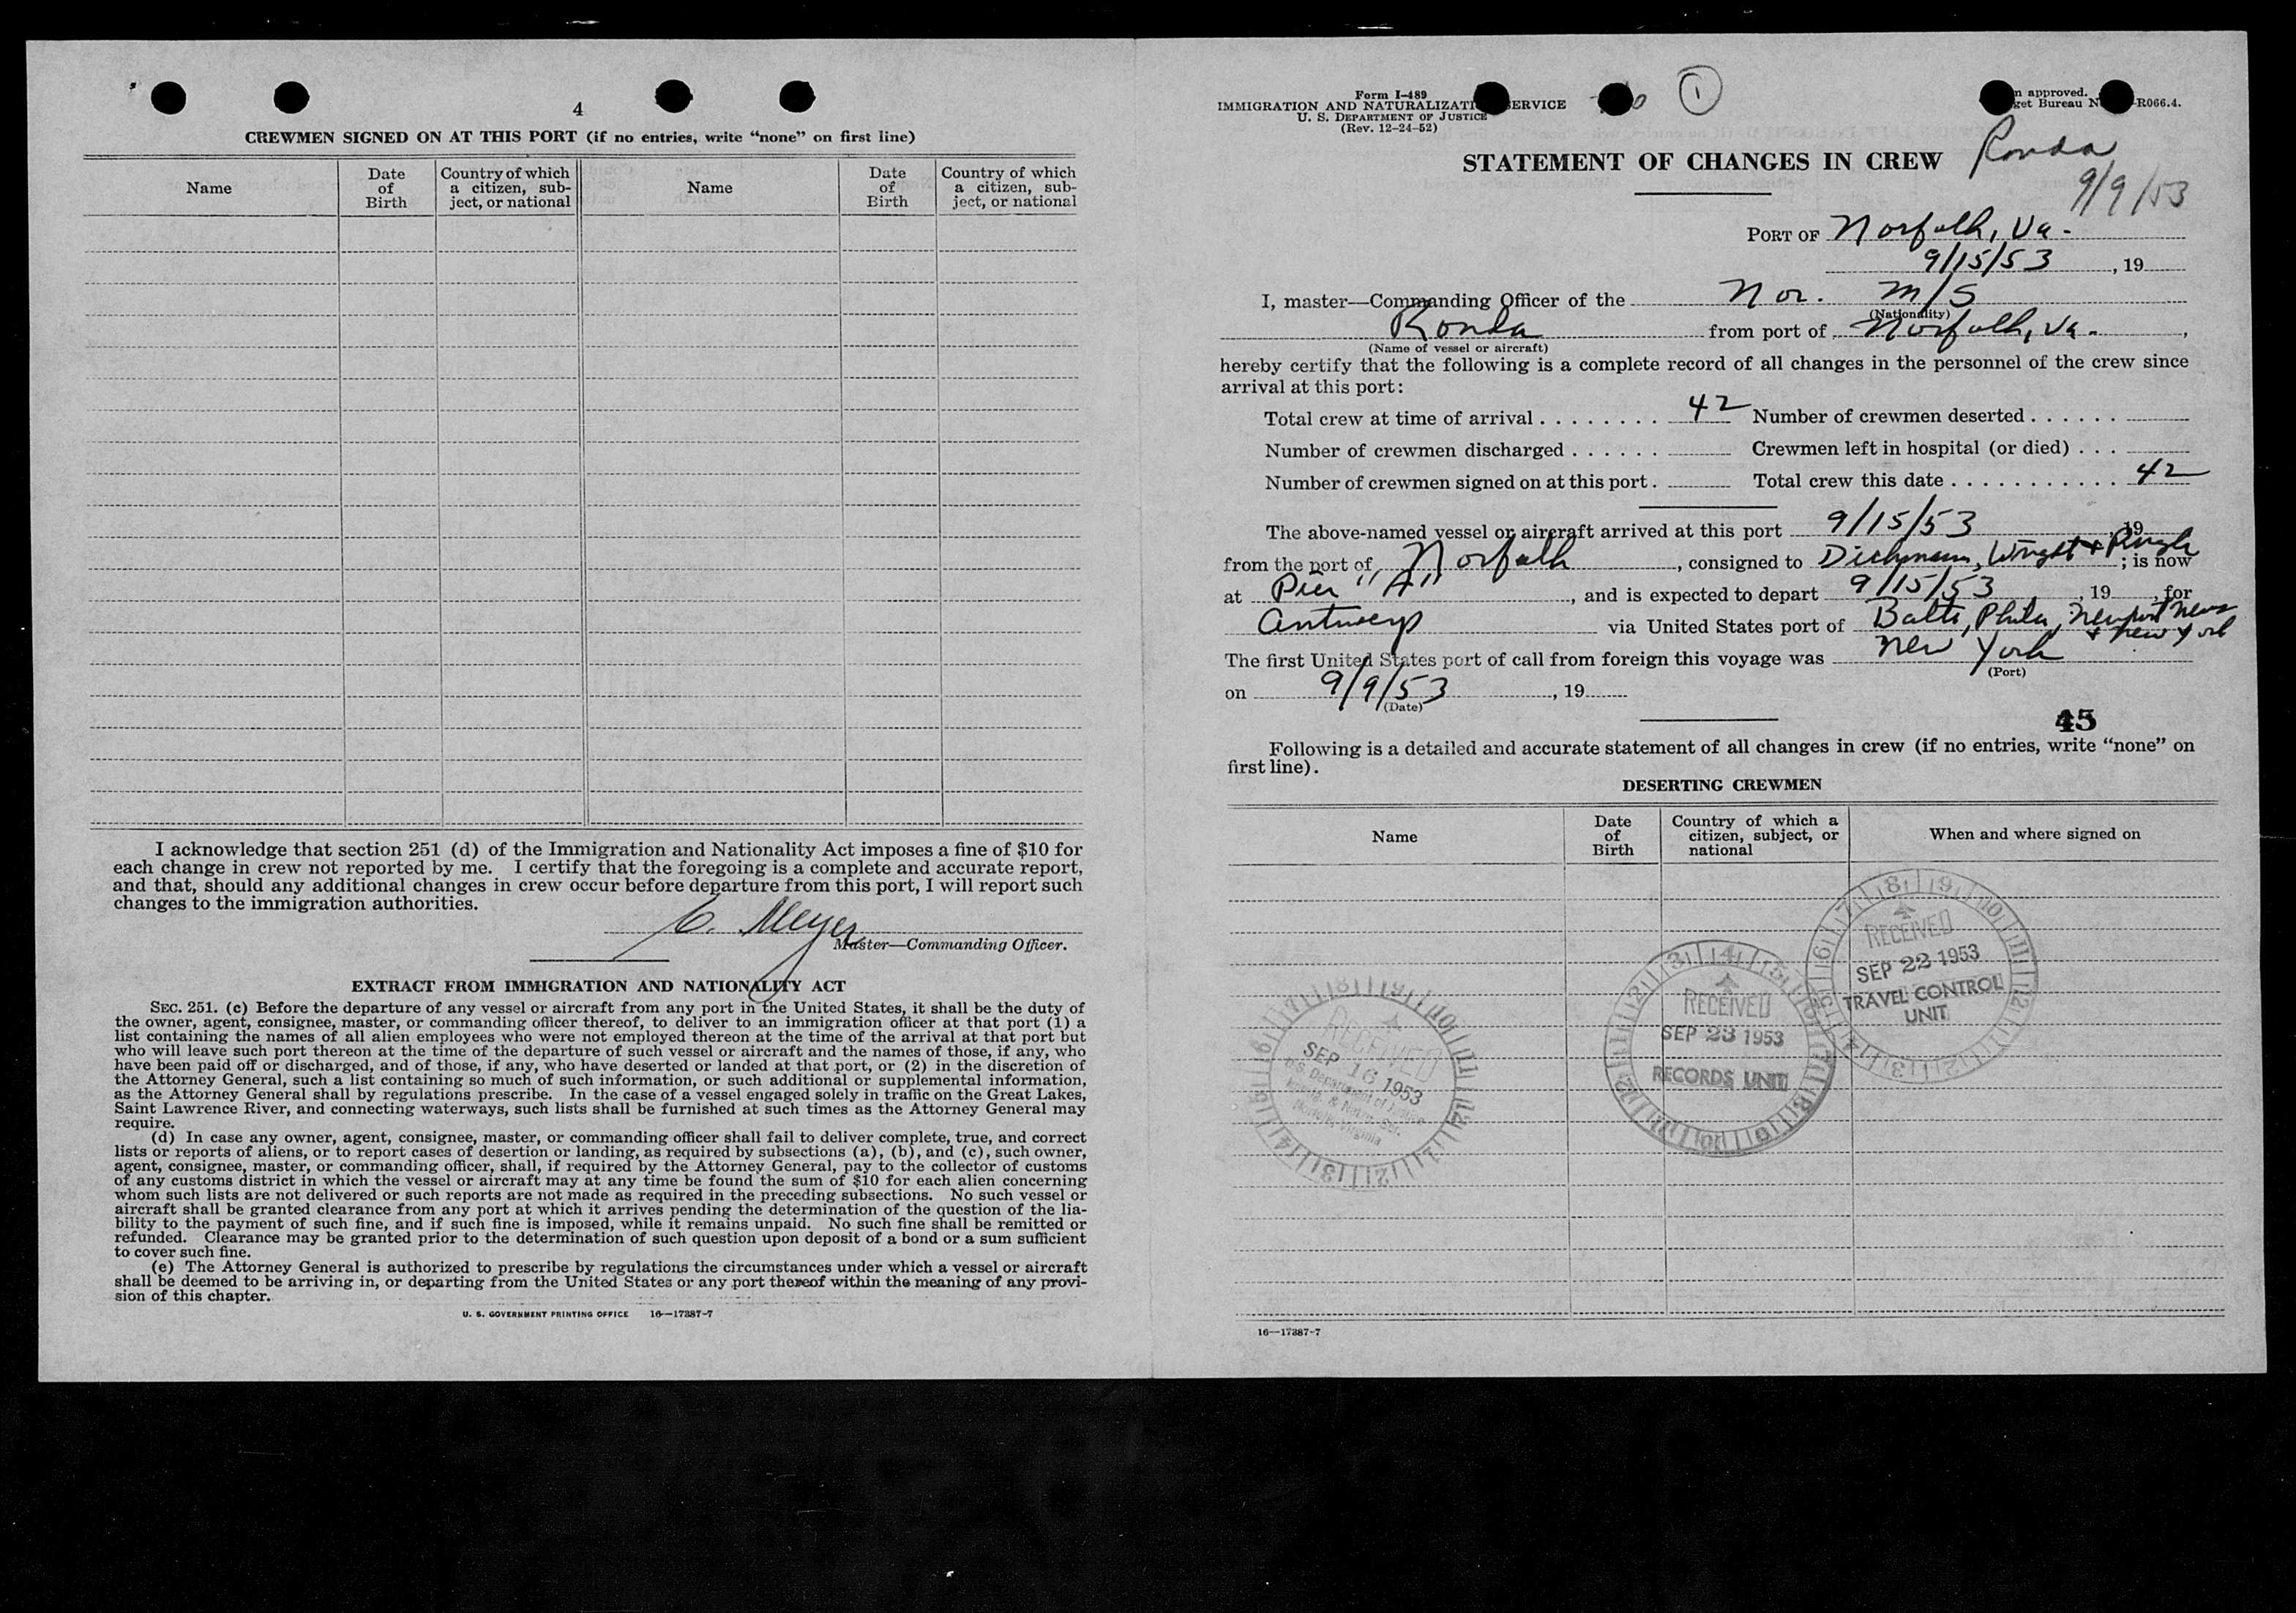 4
CREWMEN SIGNED ON AT THIS PORT (if no entries, write “none” on first line)
Name
Date
of
Birth
Country of which
a citizen, sub-
ject, or national
Name
Date
of
Birth
Country of which
a citizen, sub-
ject, or national
I acknowledge that section 251 (d) of the Immigration and Nationality Act imposes a fine of $10 for
each change in crew not reported by me. I certify that the foregoing is a complete and accurate report,
and that, should any additional changes in crew occur before departure from this port, I will report such
changes to the immigration authorities.
C. Meyer
Master—Commanding Officer.
EXTRACT FROM IMMIGRATION AND NATIONALITY ACT
SEC. 251. (c) Before the departure of any vessel or aircraft from any port in the United States, it shall be the duty of
the owner, agent, consignee, master, or commanding officer thereof, to deliver to an immigration officer at that port (1) a
list containing the names of all alien employees who were not employed thereon at the time of the arrival at that port but
who will leave such port thereon at the time of the departure of such vessel or aircraft and the names of those, if any, who
have been paid off or discharged, and of those, if any, who have deserted or landed at that port, or (2) in the discretion of
the Attorney General, such a list containing so much of such information, or such additional or supplemental information,
as the Attorney General shall by regulations prescribe. In the case of a vessel engaged solely in traffic on the Great Lakes,
Saint Lawrence River, and connecting waterways, such lists shall be furnished at such times as the Attorney General may
require.
(d) In case any owner, agent, consignee, master, or commanding officer shall fail to deliver complete, true, and correct
lists or reports of aliens, or to report cases of desertion or landing, as required by subsections (a), (b), and (c), such owner,
agent, consignee, master, or commanding officer, shall, if required by the Attorney General, pay to the collector of customs
of any customs district in which the vessel or aircraft may at any time be found the sum of $10 for each alien concerning
whom such lists are not delivered or such reports are not made as required in the preceding subsections. No such vessel or
aircraft shall be granted clearance from any port at which it arrives pending the determination of the question of the lia-
bility to the payment of such fine, and if such fine is imposed, while it remains unpaid. No such fine shall be remitted or
refunded. Clearance may be granted prior to the determination of such question upon deposit of a bond or a sum sufficient
to cover such fine.
(e) The Attorney General is authorized to prescribe by regulations the circumstances under which a vessel or aircraft
shall be deemed to be arriving in, or departing from the United States or any port thereof within the meaning of any provi-
sion of this chapter.
U. S. GOVERNMENT PRINTING OFFICE 16—17387-7
Form I-489
IMMIGRATION AND NATURALIZATI SERVICE
U. S. DEPARTMENT OF JUSTICE
(Rev. 12-24-52)
1
approved.
get Bureau N R066.4.
STATEMENT OF CHANGES IN CREW
Ronda
9/9/53
PORT OF Norfolk, Va.
9/15/53, 19
I, master—Commanding Officer of the Nor. M/S
(Nationality)
Ronda from port of Norfolk, Va.,
(Name of vessel or aircraft)
hereby certify that the following is a complete record of all changes in the personnel of the crew since
arrival at this port:
Total crew at time of arrival . . . . . . . . 42 Number of crewmen deserted . . . . . .
Number of crewmen discharged . . . . . . Crewmen left in hospital (or died) . . .
Number of crewmen signed on at this port . Total crew this date . . . . . . . . . . . . 42
The above-named vessel or aircraft arrived at this port 9/15/53, 19
from the port of Norfolk, consigned to Dichmann, Wright & Pugh; is now
at Pier "A", and is expected to depart 9/15/53, 19, for
Antwerp via United States port of Balto, Phila, Newport News
& New York
The first United States port of call from foreign this voyage was New York
(Port)
on 9/9/53, 19
(Date)
45
Following is a detailed and accurate statement of all changes in crew (if no entries, write “none” on
first line).
DESERTING CREWMEN
Name
Date
of
Birth
Country of which a
citizen, subject, or
national
When and where signed on
RECEIVED
SEP 22 1953
TRAVEL CONTROL
UNIT
RECEIVED
SEP 23 1953
RECORDS UNIT
RECEIVED
SEP 16 1953
U.S. Department of Justice
Immig. & Natur. Ser.
Norfolk, Virginia
16—17387-7